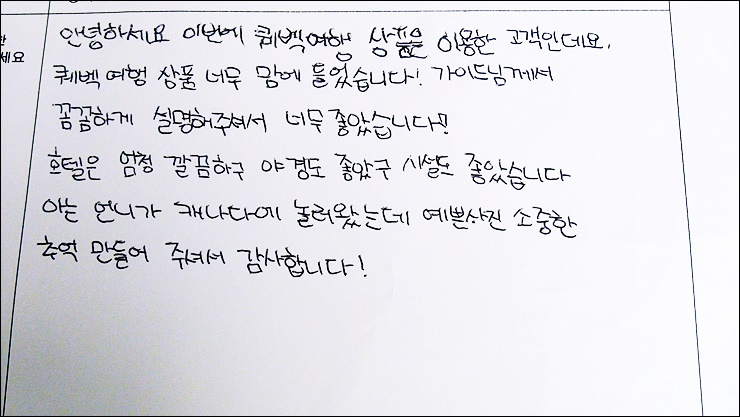 안녕하세요 이번에 퀘벡여행 상품을 이용한 고객인데요.
퀘벡 여행 상품 너무 맘에 들었습니다! 가이드님께서
꼼꼼하게 설명해주셔서 너무 좋았습니다!!
호텔은 엄청 깔끔하구 야경도 좋았구 시설도 좋았습니다
아는 언니가 캐나다에 놀러왔는데 예쁜사진 소중한
추억 만들어 주셔서 감사합니다!
세요